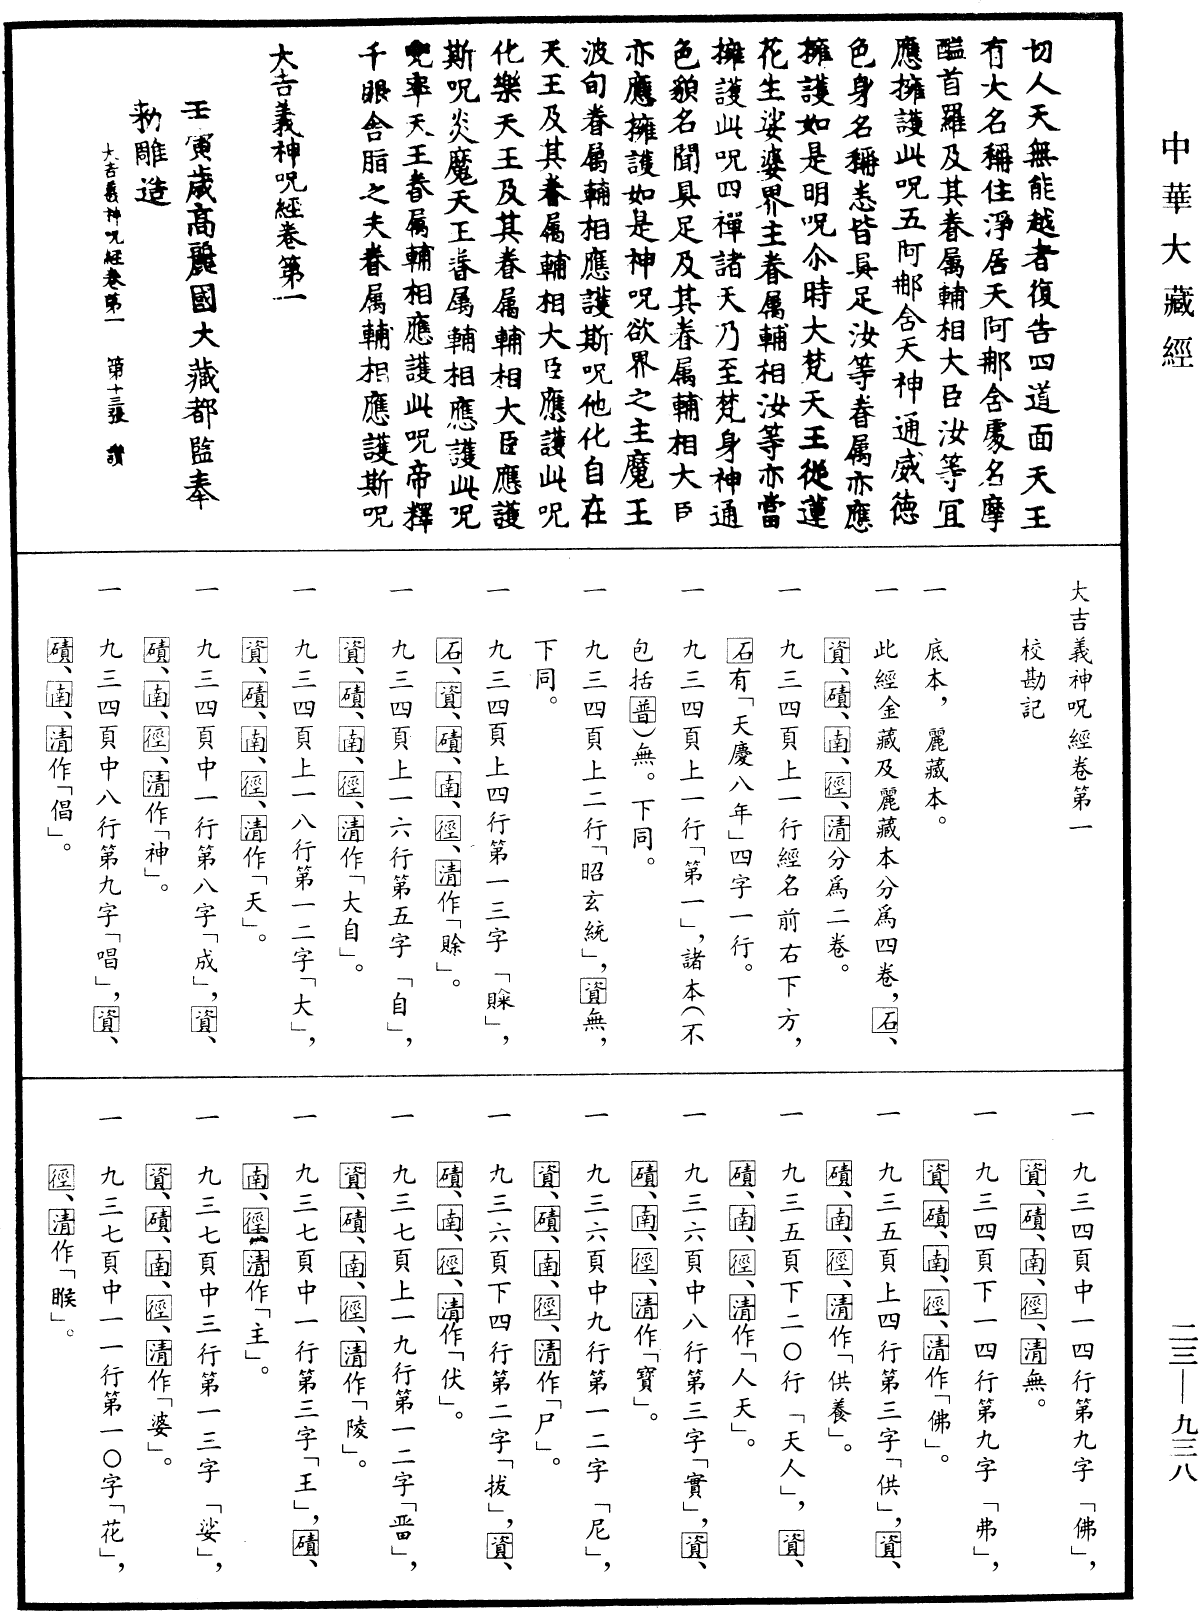 中華大藏經
切人天無能越者復告四道面天王
有大名稱住淨居天阿郍舍處名摩
醯首羅及其眷属輔相大臣汝等宜
應擁護此呪五阿郍含天神通威德
色身名稱悉皆具足汝等眷属亦應
擁護如是明呪尒時大梵天王從蓮
花生娑婆界主眷属輔相汝等亦當
擁護此呪四禪諸天乃至梵身神通
色貌名聞具足及其眷属輔相大臣
亦應擁護如是神呪欲界之主魔王
波旬眷属輔相應護斯呪他化自在
天王及其眷属輔相大臣應護此呪
化樂天王及其眷属輔相大臣應護
斯呪炎魔天王眷属輔相應護此呪
兜率天王眷属輔相應護此呪帝釋
千眼舍脂之夫眷属輔相應護斯呪
大吉義神呪經卷第一
壬寅歳高麗國大藏都監奉
勅雕造
大吉義神呪經卷第一 第十三張
大吉義神呪經卷第一
校勘記
一 底本，麗藏本。
一 此經金藏及麗藏本分爲四卷，石、
資、磧、南、徑、清分爲二卷。
一 九三四頁上一行經名前右下方，
石有「天慶八年」四字一行。
一 九三四頁上一行「第一」，諸本（不
包括普）無。下同。
一 九三四頁上二行「昭玄統」，資無，
下同。
一 九三四頁上四行第一三字「睬」，
石、資、磧、南、徑、清作「賒」。
一 九三四頁上一六行第五字「自」，
資、磧、南、徑、清作「大自」。
一 九三四頁上一八行第一二字「大」，
資、磧、南、徑、清作「天」。
一 九三四頁中一行第八字「成」，資、
磧、南、徑、清作「神」。
一 九三四頁中八行第九字「唱」，資、
磧、南、清作「倡」。
一 九三四頁中一四行第九字「佛」，
資、磧、南、徑、清無。
一 九三四頁下一四行第九字「弗」，
資、磧、南、徑、清作「佛」。
一 九三五頁上四行第三字「供」，資、
磧、南、徑、清作「供養」。
一 九三五頁下二〇行「天人」，資、
磧、南、徑、清作「人天」。
一 九三六頁中八行第三字「實」，資、
磧、南、徑、清作「寶」。
一 九三六頁中九行第一二字「尼」，
資、磧、南、徑、清作「尸」。
一 九三六頁下四行第二字「拔」，資、
磧、南、徑、清作「伏」。
一 九三七頁上一九行第一二字「畱」，
資、磧、南、徑、清作「陵」。
一 九三七頁中一行第三字「王」，磧、
南、徑、清作「主」。
一 九三七頁中三行第一三字「娑」，
資、磧、南、徑、清作「婆」。
一 九三七頁中一一行第一〇字「花」，
徑、清作「睺」。
二三—九三八